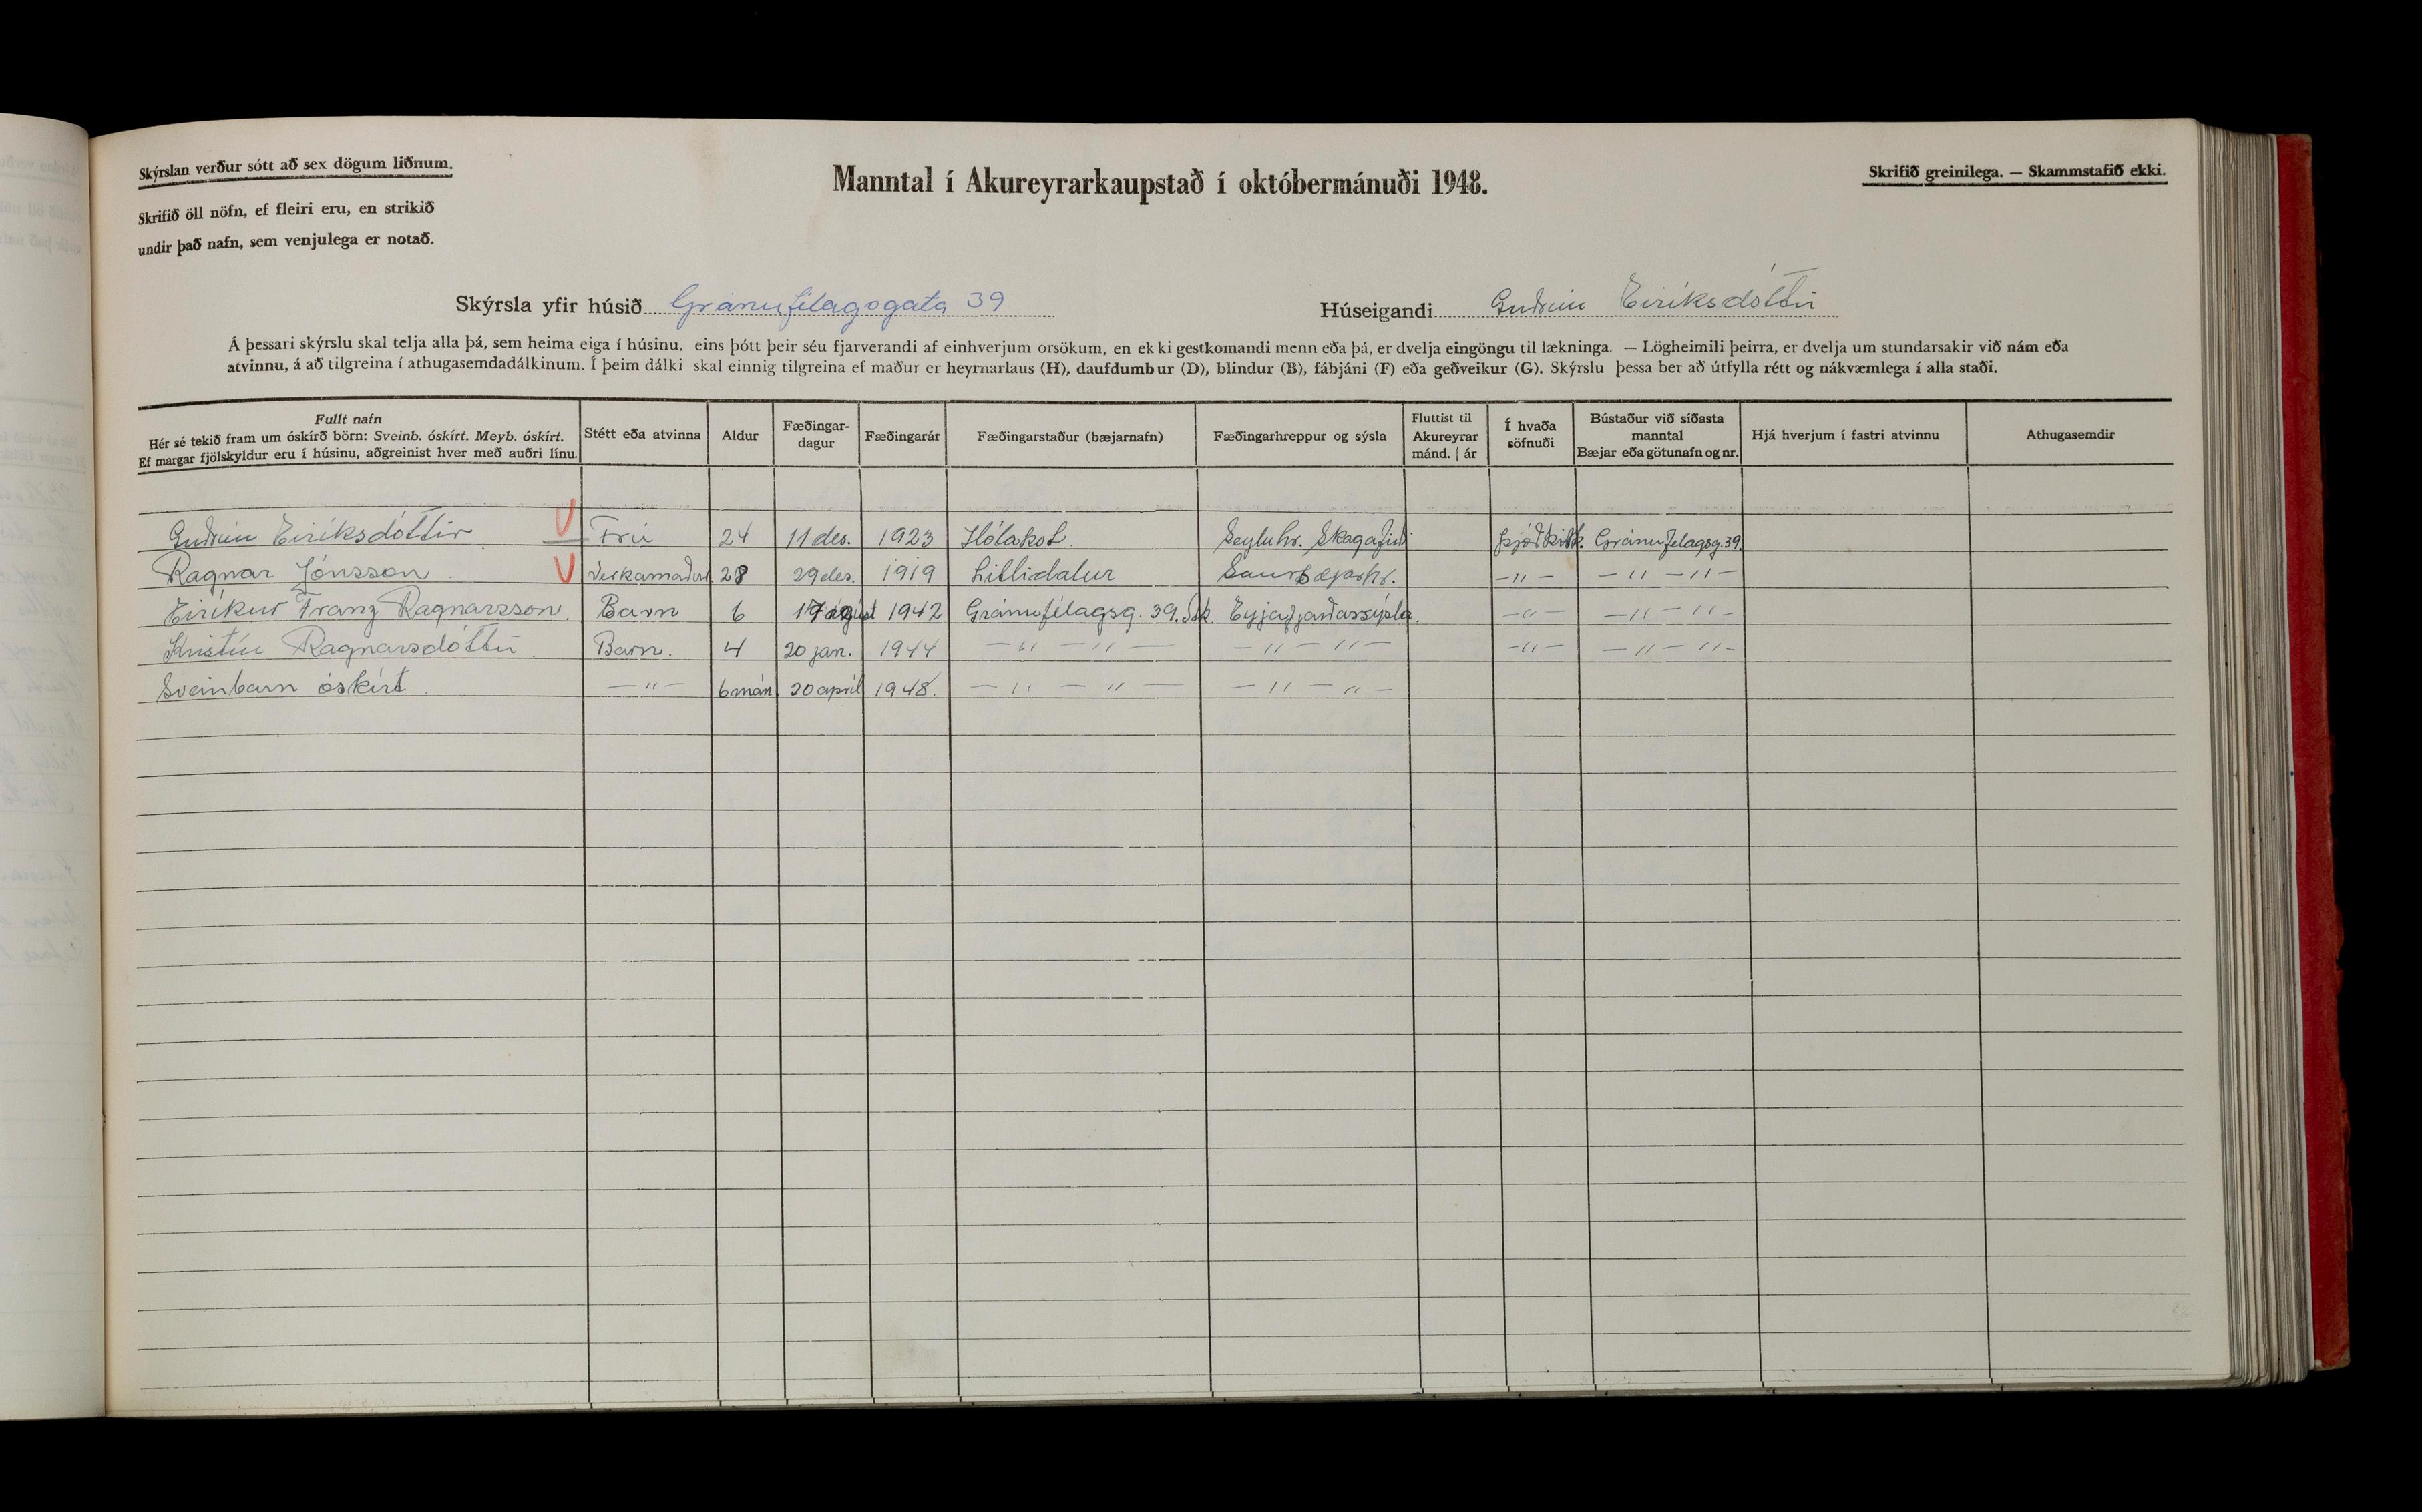 Skýrslan verður sótt að sex dögum liðnum.
Manntal í Akureyrarkaupstað í októbermánuði 1948.
Skrifið greinilega. — Skammstafið ekki.
Skrifið öll nöfn, ef fleiri eru, en strikið
undir það nafn, sem venjulega er notað.
Skýrsla yfir húsið Gránufélagsgata 39 Húseigandi Guðrún Eiríksdóttir
Á þessari skýrslu skal telja alla þá, sem heima eiga í húsinu, eins þótt þeir séu fjarverandi af einhverjum orsökum, en ekki gestkomandi menn eða þá, er dvelja eingöngu til lækninga. — Lögheimili þeirra, er dvelja um stundarsakir við nám eða
atvinnu, á að tilgreina í athugasemdadálkinum. Í þeim dálki skal einnig tilgreina ef maður er heyrnarlaus (H), daufdumbur (D), blindur (B), fábjáni (F) eða geðveikur (G). Skýrslu þessa ber að útfylla rétt og nákvæmlega í alla staði.
Fullt nafn
Hér sé tekið fram um óskírð börn: Sveinb. óskírt. Meyb. óskírt.
Ef margar fjölskyldur eru í húsinu, aðgreinist hver með auðri línu.
Stétt eða atvinna
Aldur
Fæðingar-
dagur
Fæðingarár
Fæðingarstaður (bæjarnafn)
Fæðingarhreppur og sýsla
Fluttist til
Akureyrar
mánd. | ár
Í hvaða
söfnuði
Bústaður við síðasta
manntal
Bæjar eða götunafn og nr.
Hjá hverjum í fastri atvinnu
Athugasemdir
Guðrún Eiríksdóttir V Frú 24 11 des. 1923 Hólakot. Seyluhr. Skagafirði Þjóðkirk. Gránufelagsg. 39.
Ragnar Jónsson. V Verkamaður 28 29 des. 1919 Litlidalur Saurbæjarhr. —〃— —〃—〃—
Eiríkur Franz Ragnarsson. Barn 6 17 ágúst 1942 Gránufélagsg. 39. Ak Eyjafjarðarsýsla. —〃— —〃—〃—
Kristín Ragnarsdóttir. Barn. 4 20 jan. 1944 —〃—〃— —〃—〃— —〃— —〃—〃—
Sveinbarn óskírt. —〃— 6 mán 20 apríl 1948. —〃—〃— —〃—〃—